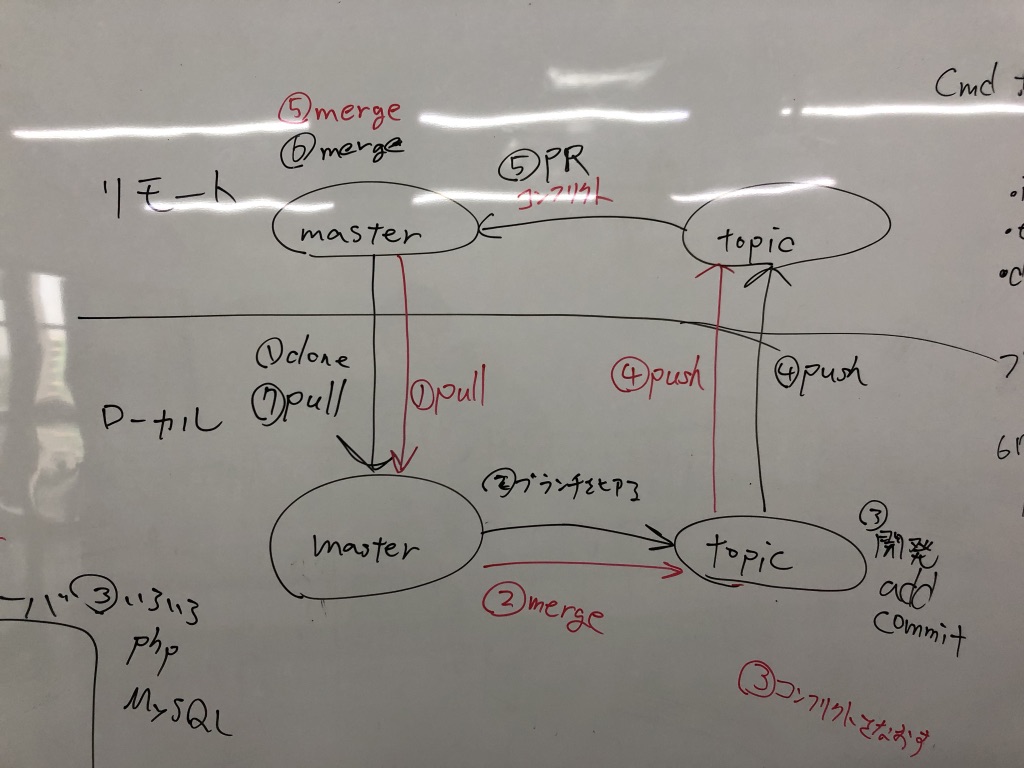 ⑤merge
⑥merge
Cmd
⑤PR
コンフリクト
リモート
master
topic
①clone
⑦pull
①pull
④push
④push
ローカル
②ブランチをヒアる
master
topic
③
開発
add
commit
②merge
③いろいろ
php
MySQL
③コンフリクトをなおす